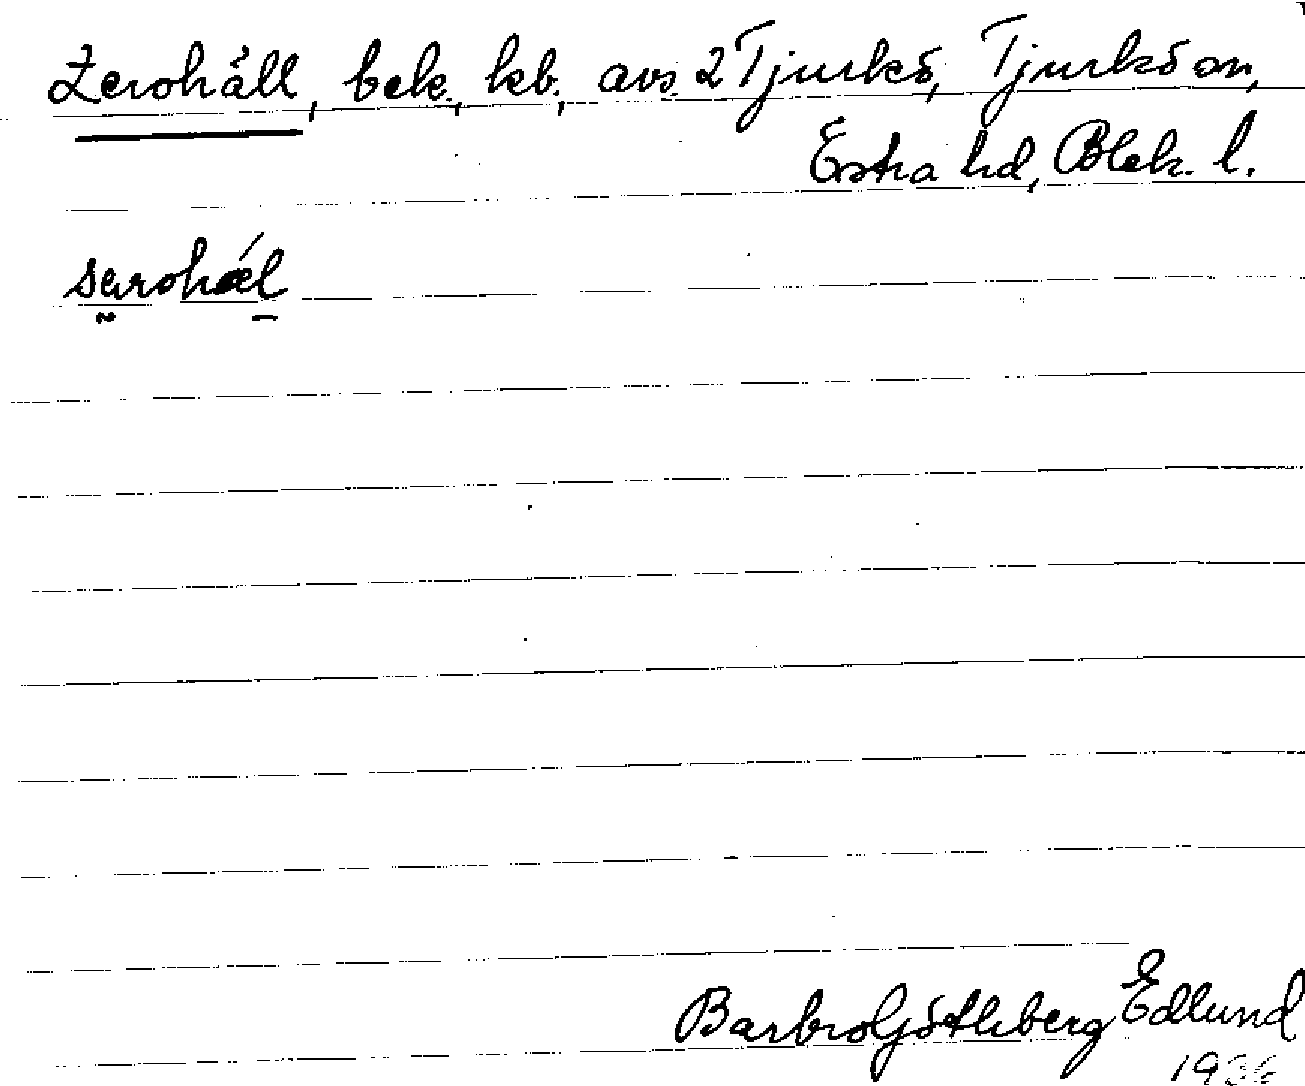 Zerohäll, bek., kb., avs. 2 Tjurkö, Tjurkö sn,
Östra hd, Blek. l.
serohæ´l
Barbro Götheberg Edlund
1936